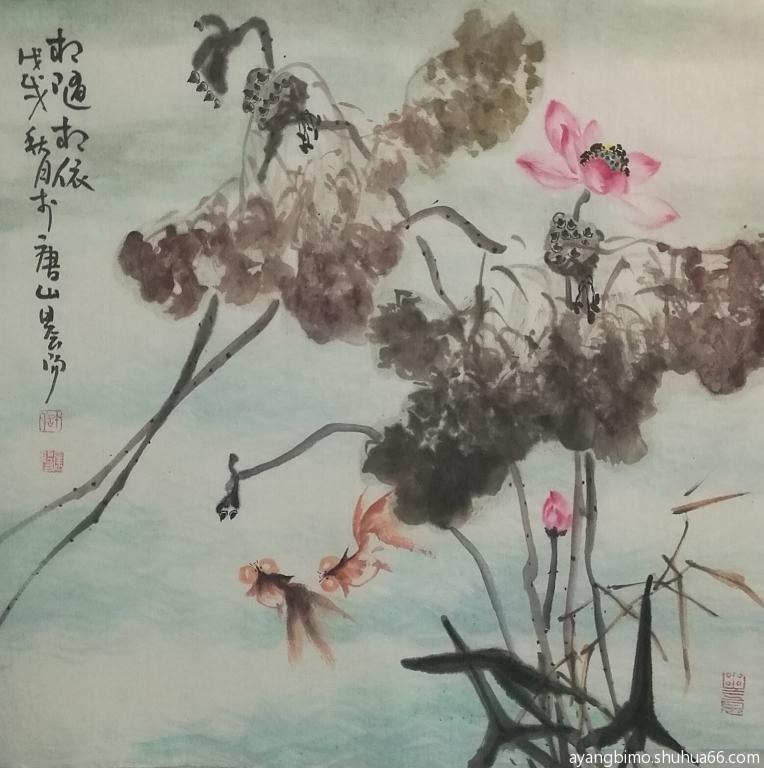 相随相依
戊戌秋月於唐山晨
ayangbimo.shuhua66.com